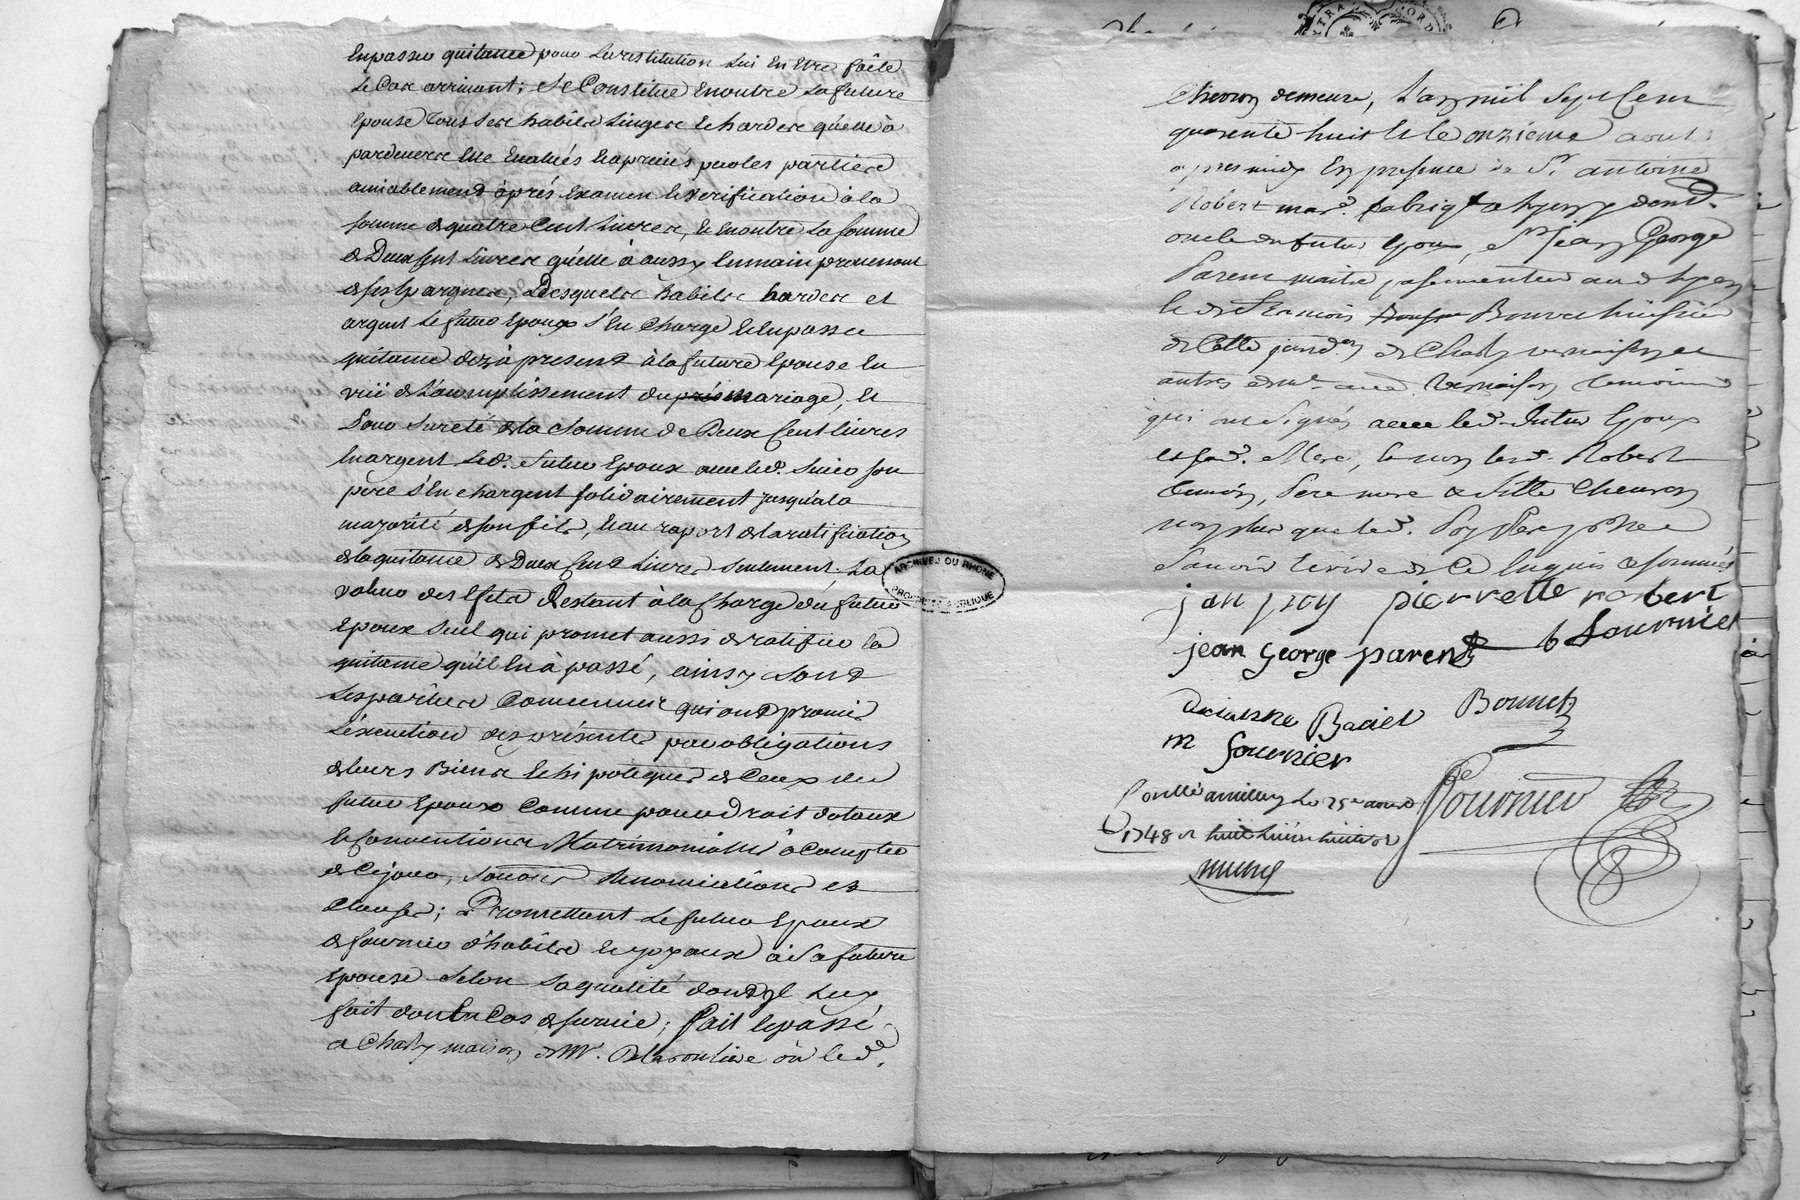 Enpasser quitance pour La restitution Lui En Etre faite
Le Cas arrivant; Se Constitue Enoutre La future
Epouse tous Ses habits Linges Et hardes qu'elle à
pardevers Elle Evalués Et apreciés par les parties
amiablement aprés Examen Et verification à la
somme de quatre Cent Livres, Et Enoutre La somme
de Deux Cent Livres qu'elle à aussy En main provenant
de ses Epargnes, Desquels habits hardes et
argent Le futur Epoux s'En Charge Et En passe
quitance dez à present à la future Epouse En
de L'acomplissement du mariage, Et
Pour Sureté de la Somme de Deux Cent livres
En argent Led. futur Epoux avec led. Sieur son
pere s'En chargent solidairement jusqu'a la
majorité de son fils, Et au raport de la ratification
de la quitance de Deux Cent Livres seulement. La
valeur des Efets Restant à la Charge du futur
Epoux Seul qui promet aussi de ratifier la
quitance qu'il En à passé, ainsy sont
Les parties Convenues qui ont promis
L'éxecution des présentes par obligations
de leurs Biens Et hipoteques de Ceux du
futur Epoux Comme pour Droit dotaux
Et Conventions Matrimonialles à Compter
de Cejour, renonciations et
Clauses; Promettant Le futur Epoux
de fournir d'habits Et joyaux à Sa future
Epouse Selon Sa qualité dont Il Luy
fait don En Cas de survie; fait Et passé
a Charly maison de Mr. où led.
Chevron demeure, L'an mil Sept Cent
quarente huit Et le onzieme aout
apres midy En presence de Sr. antoine
Robert mard. fabriqt a Lyon y demt.
oncle du futur Epoux, Sr jean George
Parent maitre passementier aud Lyon
Et de francois Bonnet huissier
de Cette jurid.on de Charly vernaison et
autres dem.t aud Vernaison temoins
qui ont Signés avec led. futur Epoux
et sad. Mere, Et non led. Robert
temoin, Pere mere & fille Chevron
non plus que led. Poy Pere pour ne
Savoir Ecrire de Ce Enquis & sommés
jan poy pierrette robert
jean George parent b fournier
Badel Bonnet
m fournier
Fournier
Conllé a millery Le 25e aoust
1748 R
ARCHIVES DU RHONE
PROPRIETE PUBLIQUE